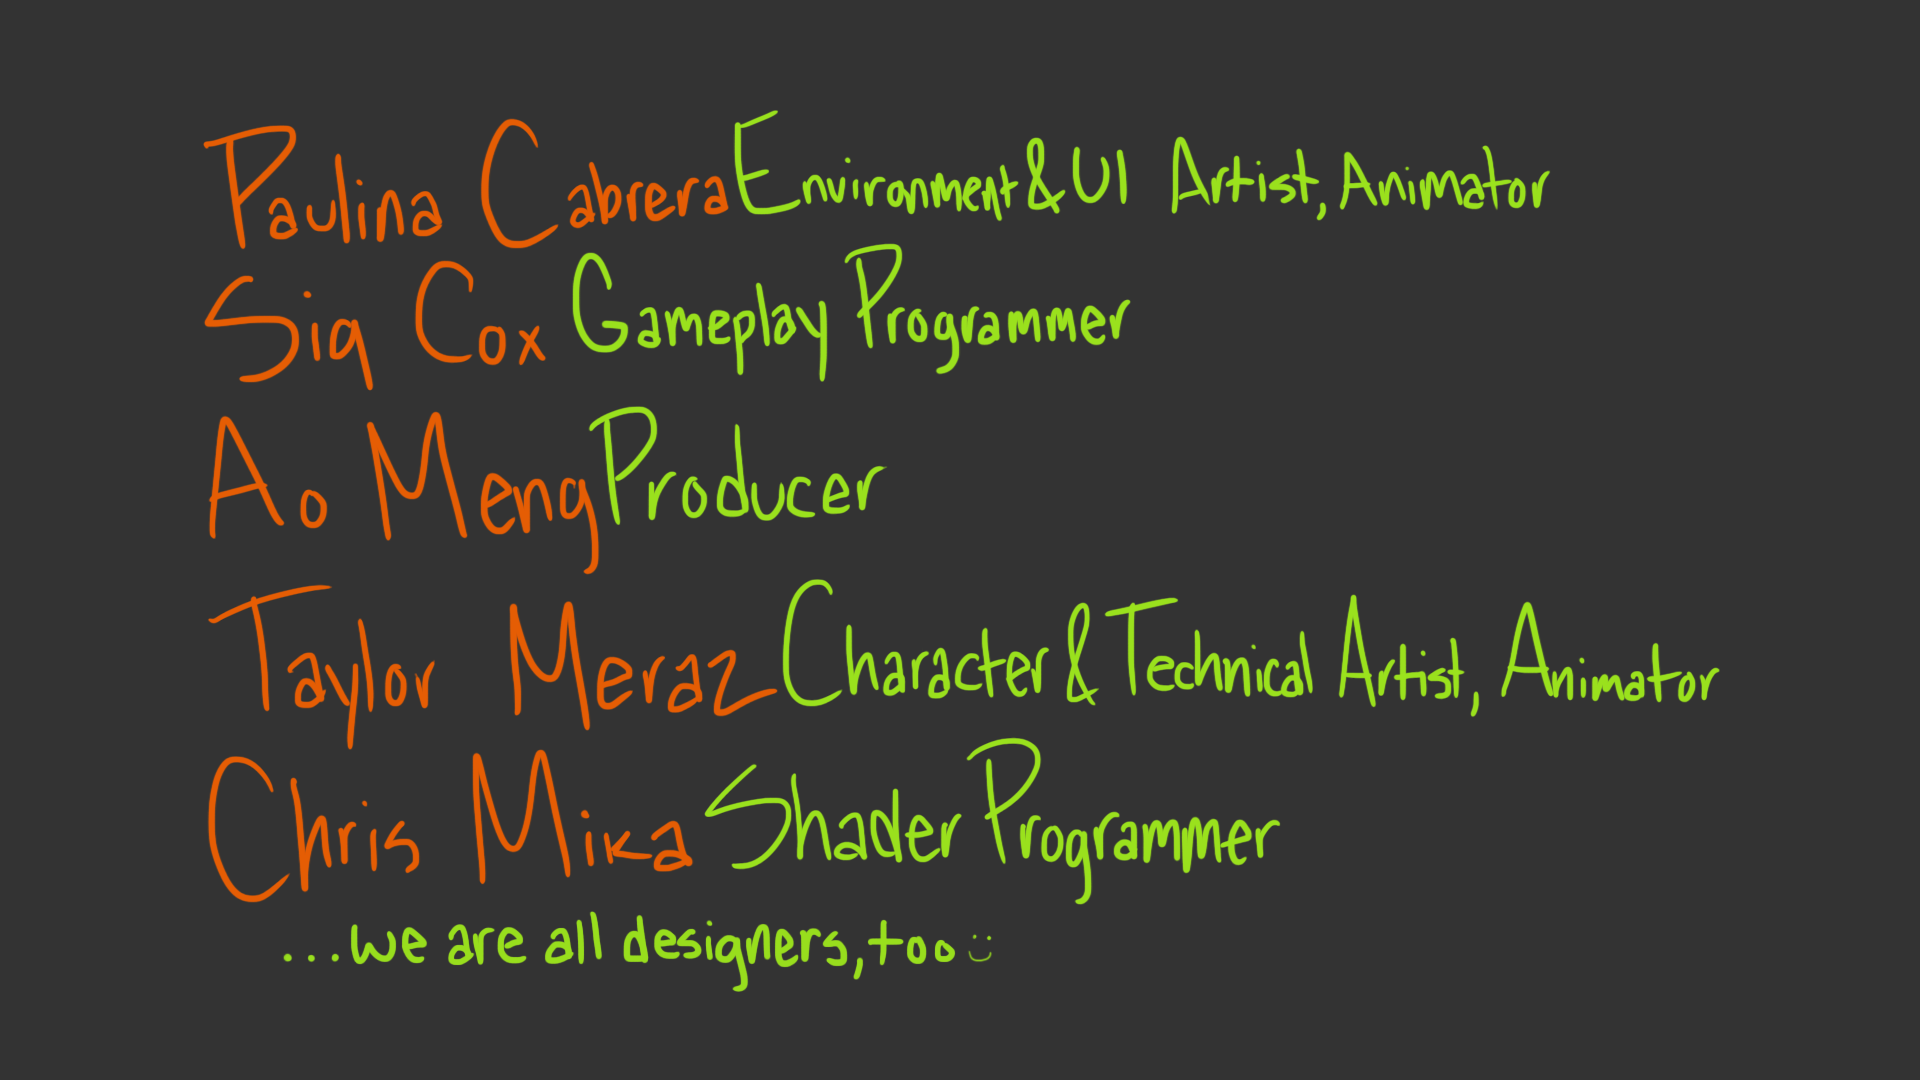 Paulina Cabrera Environment & UI Artist, Animator
Siq Cox Gameplay Programmer
Ao Meng Producer
Taylor Meraz Character & Technical Artist, Animator
Chris Mika Shader Programmer
...we are all designers, too :)